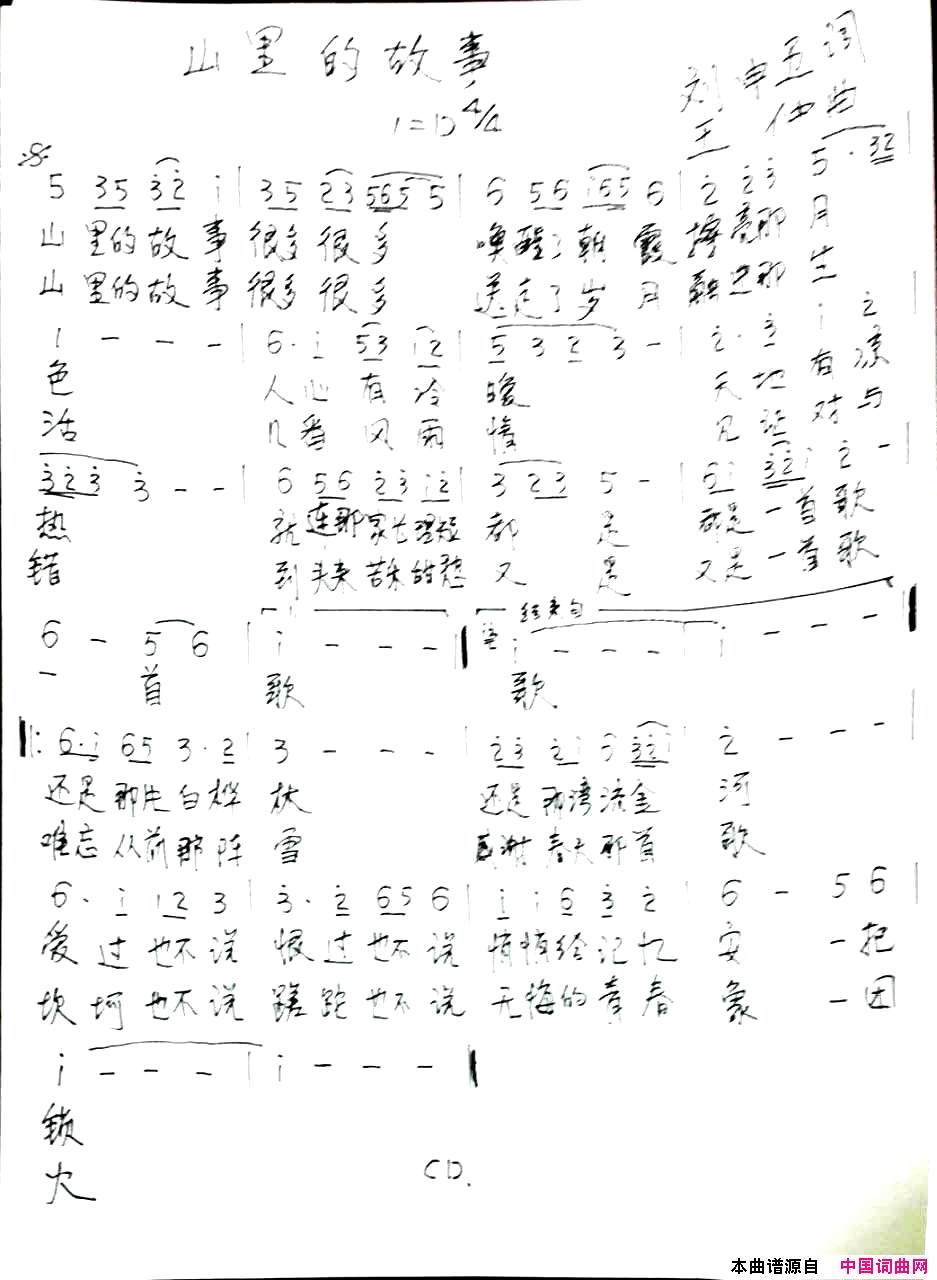 山里的故事
刘中五词
1=D 4/4
王 仲曲
5 35 32 i | 35 23 5655 | 6 56 i65 6 | 2 23 5·32
山里的故事很多很多 唤醒了朝霞擦亮那月
山里的故事很多很多 送走了岁月融进那生
1 - - - | 6·i 53 i2 | 5 3 2 3 - | 2·3 i 2
色 人心有冷暖 天地有凉
活 几番风雨情 见证对与
323 3 - - | 6 56 23 i2 | 3 23 5 - | 6i 32i 2 -
热 就连那家长理短 都是 都是一首歌
错 到头来苦乐甜愁 又是 又是一首歌
结束句
6 - 5 6 | i - - - | i - - - | i - - -
一 首 歌 歌
|: 6·i 65 3·2 | 3 - - - | 23 2i 6 32i | 2 - - -
还是那片白桦林 还是那湾流金河
难忘从前那阵雪 感谢春天那首歌
6· i 12 3 | 3· 2 65 6 | i i 6 3 2 | 6 - 5 6
爱过也不说 恨过也不说 悄悄给记忆 安 一把
坎坷也不说 蹉跎也不说 无悔的青春 象 一团
i - - - | i - - -
锁
火
CD.
本曲谱源自 中国词曲网